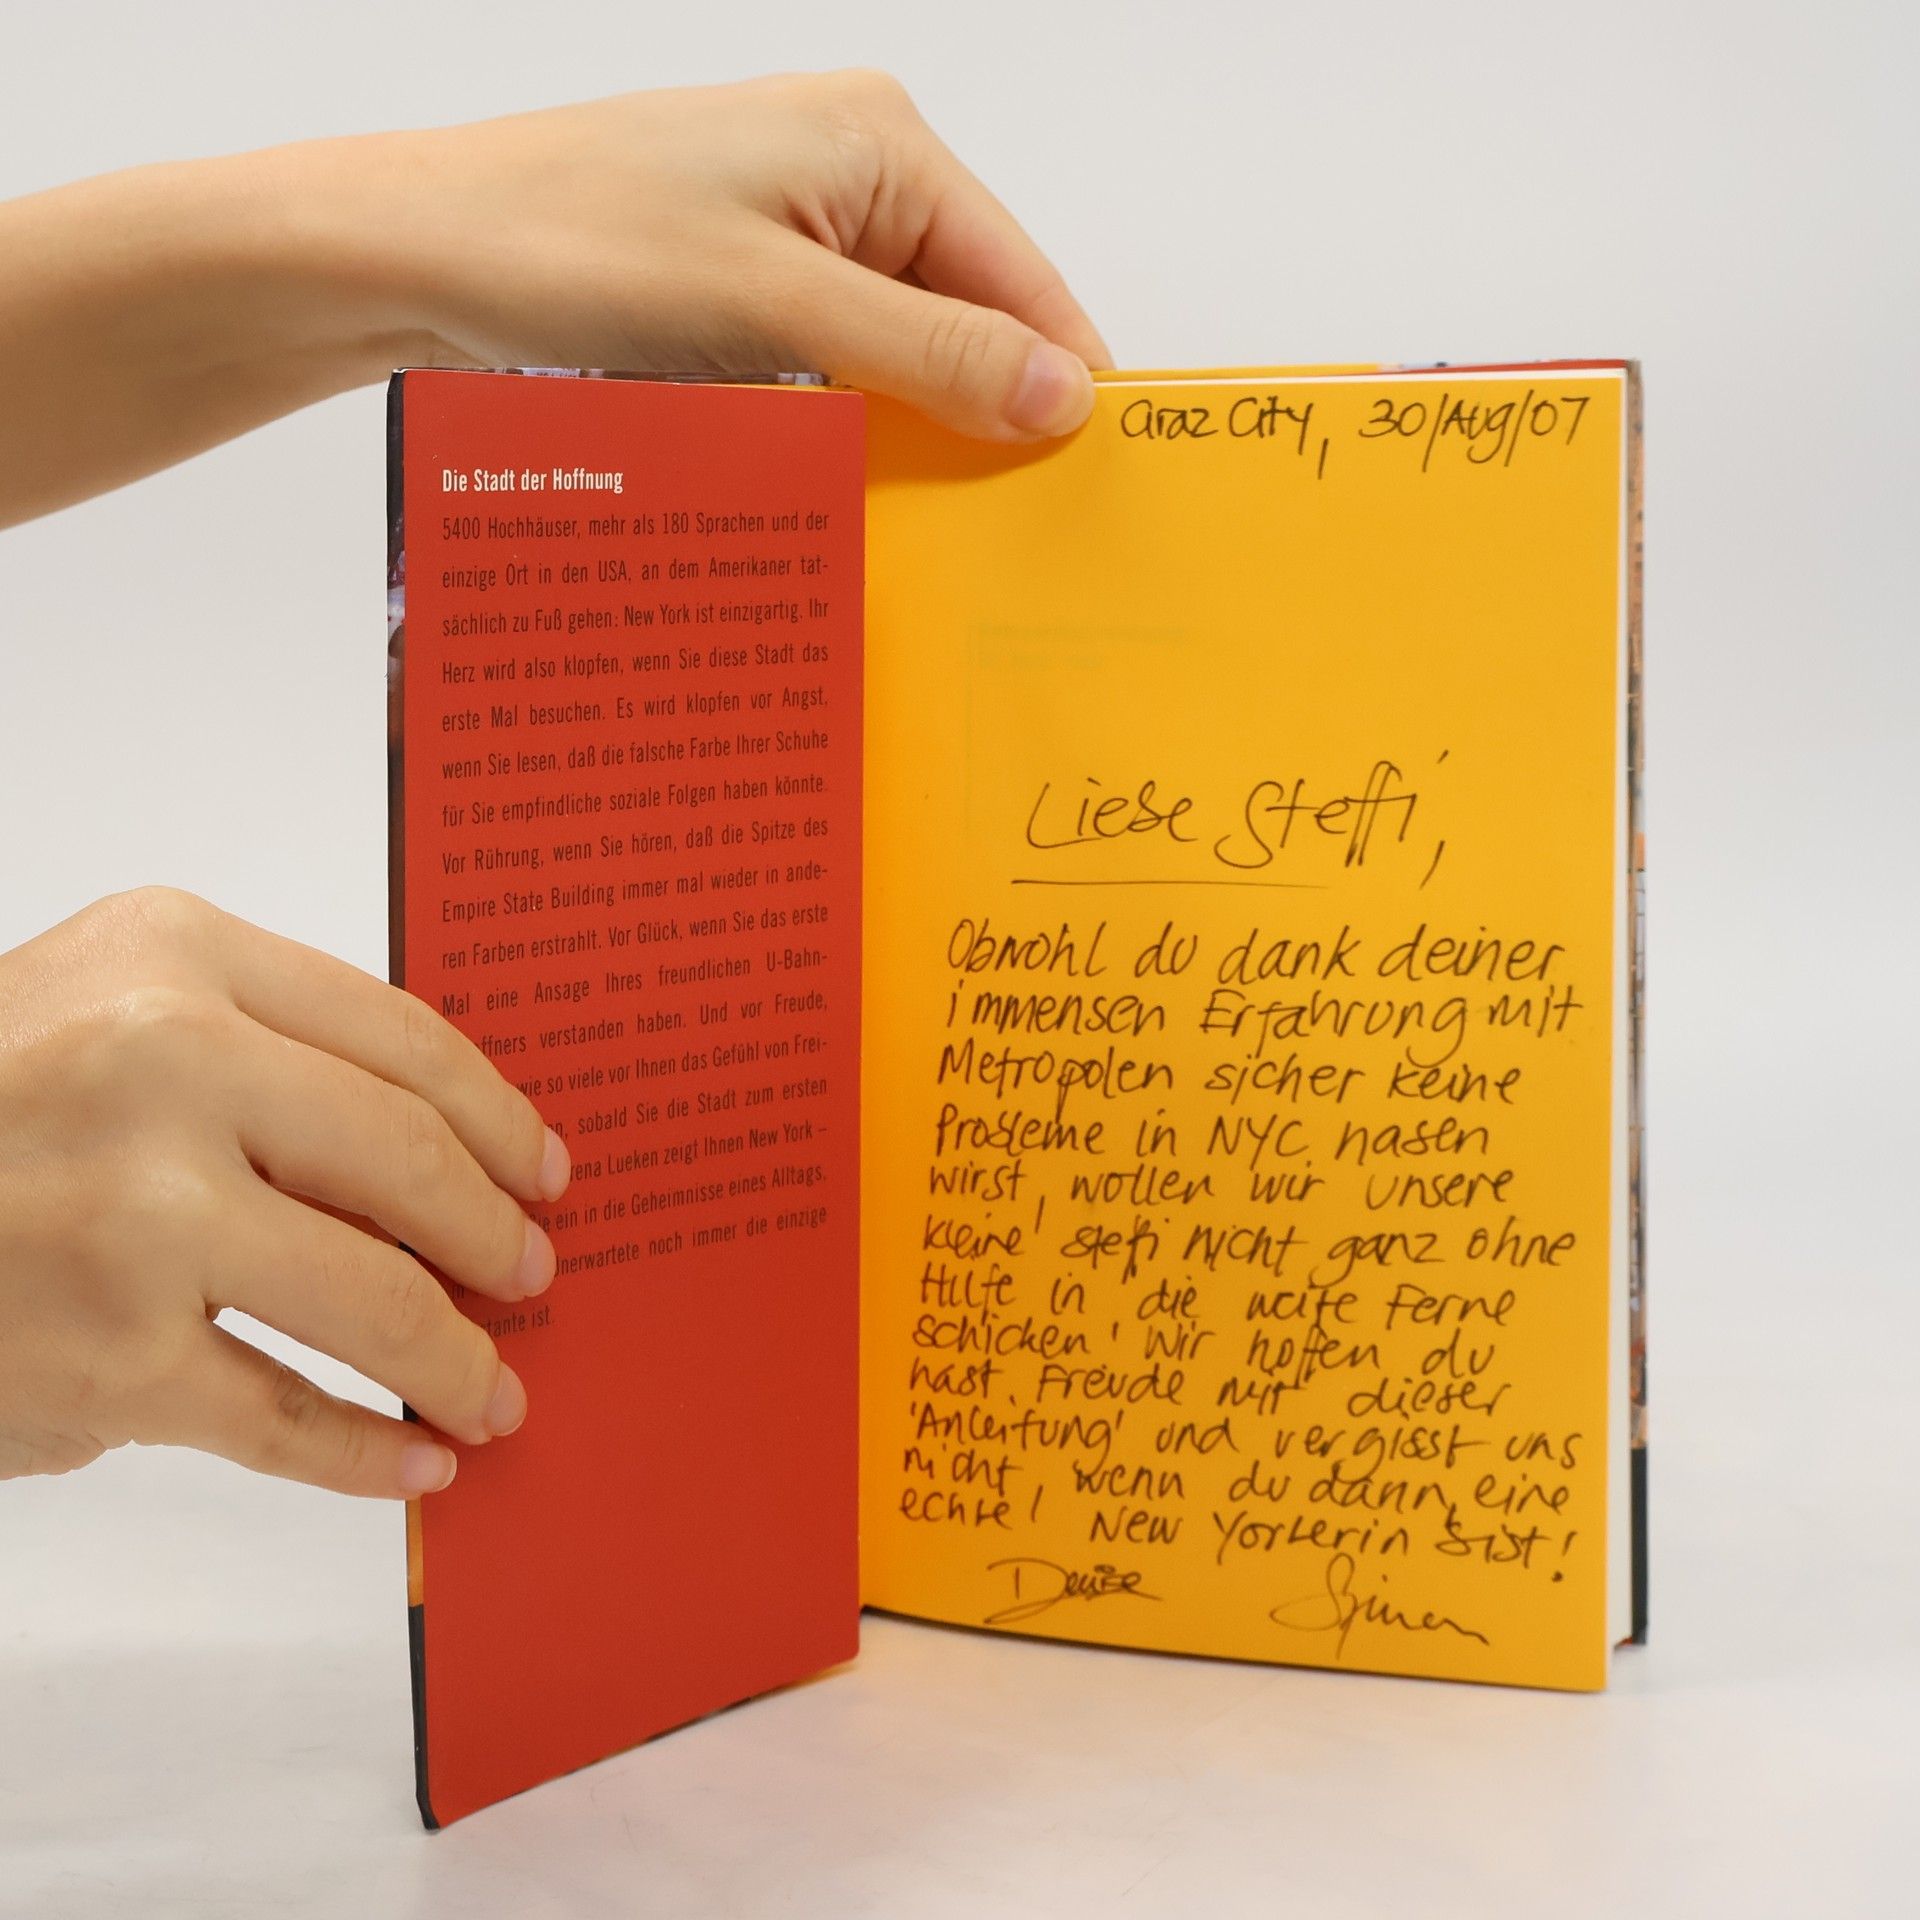 Die Stadt der Hoffnung
5400 Hochhäuser, mehr als 180 Sprachen und der
einzige Ort in den USA, an dem Amerikaner tat-
sächlich zu Fuß gehen: New York ist einzigartig. Ihr
Herz wird also klopfen, wenn Sie diese Stadt das
erste Mal besuchen. Es wird klopfen vor Angst,
wenn Sie lesen, daß die falsche Farbe Ihrer Schuhe
für Sie empfindliche soziale Folgen haben könnte.
Vor Rührung, wenn Sie hören, daß die Spitze des
Empire State Building immer mal wieder in ande-
ren Farben erstrahlt. Vor Glück, wenn Sie das erste
Mal eine Ansage Ihres freundlichen U-Bahn-
ffners verstanden haben. Und vor Freude,
wie so viele vor Ihnen das Gefühl von Frei-
sobald Sie die Stadt zum ersten
rena Lueken zeigt Ihnen New York –
ein in die Geheimnisse eines Alltags,
nerwartete noch immer die einzige
tante ist.
Graz City, 30/Aug/07
Liebe Steffi,
Obwohl du dank deiner
immensen Erfahrung mit
Metropolen sicher keine
Probleme in NYC haben
wirst, wollen wir unsere
kleine Steffi nicht ganz ohne
Hilfe in die weite Ferne
schicken! Wir hoffen du
hast Freude mit dieser
'Anleitung' und vergisst uns
nicht, wenn du dann eine
echte! New Yorkerin bist!
Denise